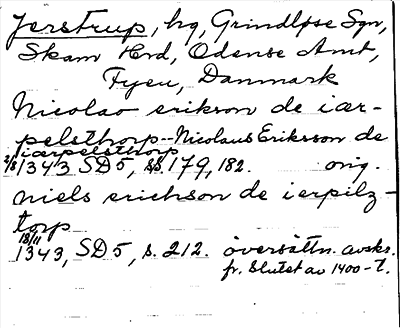 Jerstrup, hg, Grindløse Sgn,
Skam Hrd, Odense Amt,
Fyen, Danmark
Nicolao erikson de iær-
pelsthorp--Nicolaus Eriksson de
iærpelsthorp
2/8 1343 SD 5, ss. 179, 182. orig.
niels erichson de ierpilz-
torp
18/11
1343, SD 5, s. 212. översättn. avskr.
fr. slutet av 1400-t.